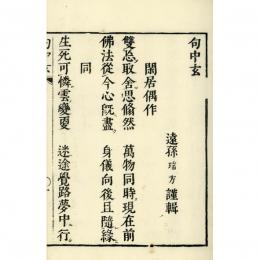 句中玄
遠孫瑞方謹輯
閑居偶作
雙忘取舍思翛然　萬物同時現在前
佛法從今心既盡　身儀向後且隨緣
同
生死可憐雲變更　迷途覺路夢中行